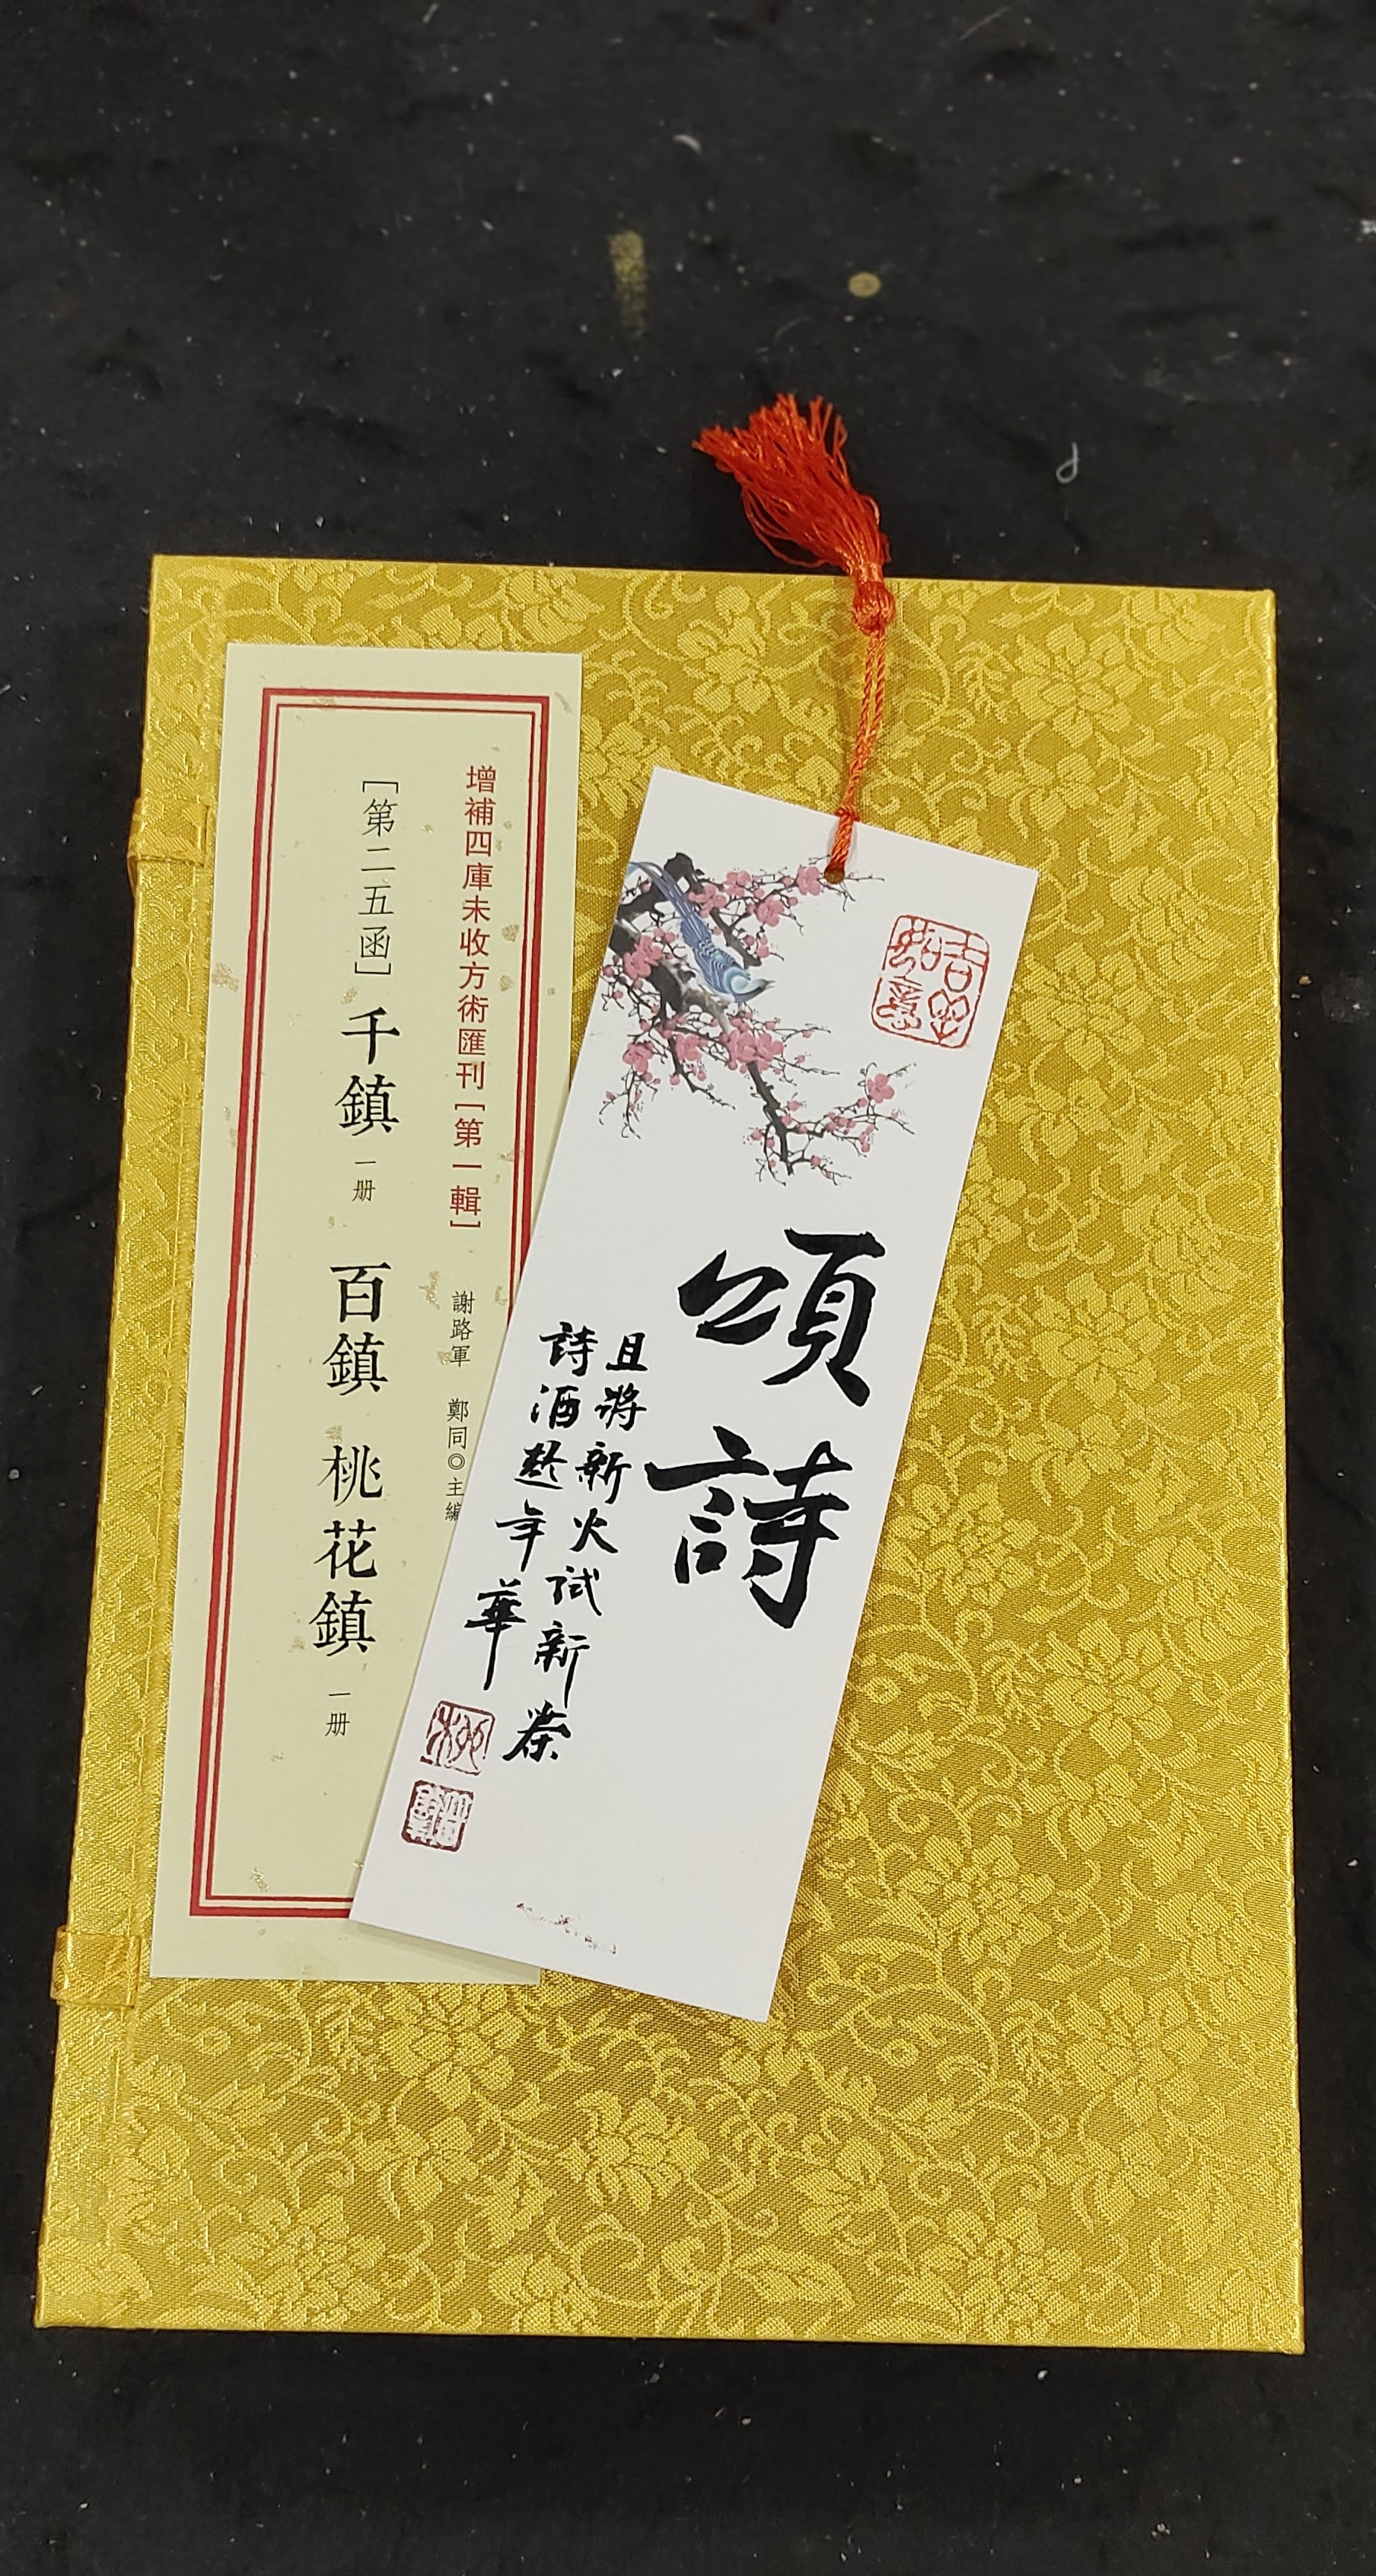 增補四庫未收方術匯刊[第一輯] 謝路軍 鄭同◎主編
[第二五函]千鎮 一册 百鎮 桃花鎮 一册
吉祥如意
頌詩
且將新火試新茶
詩酒趁年華